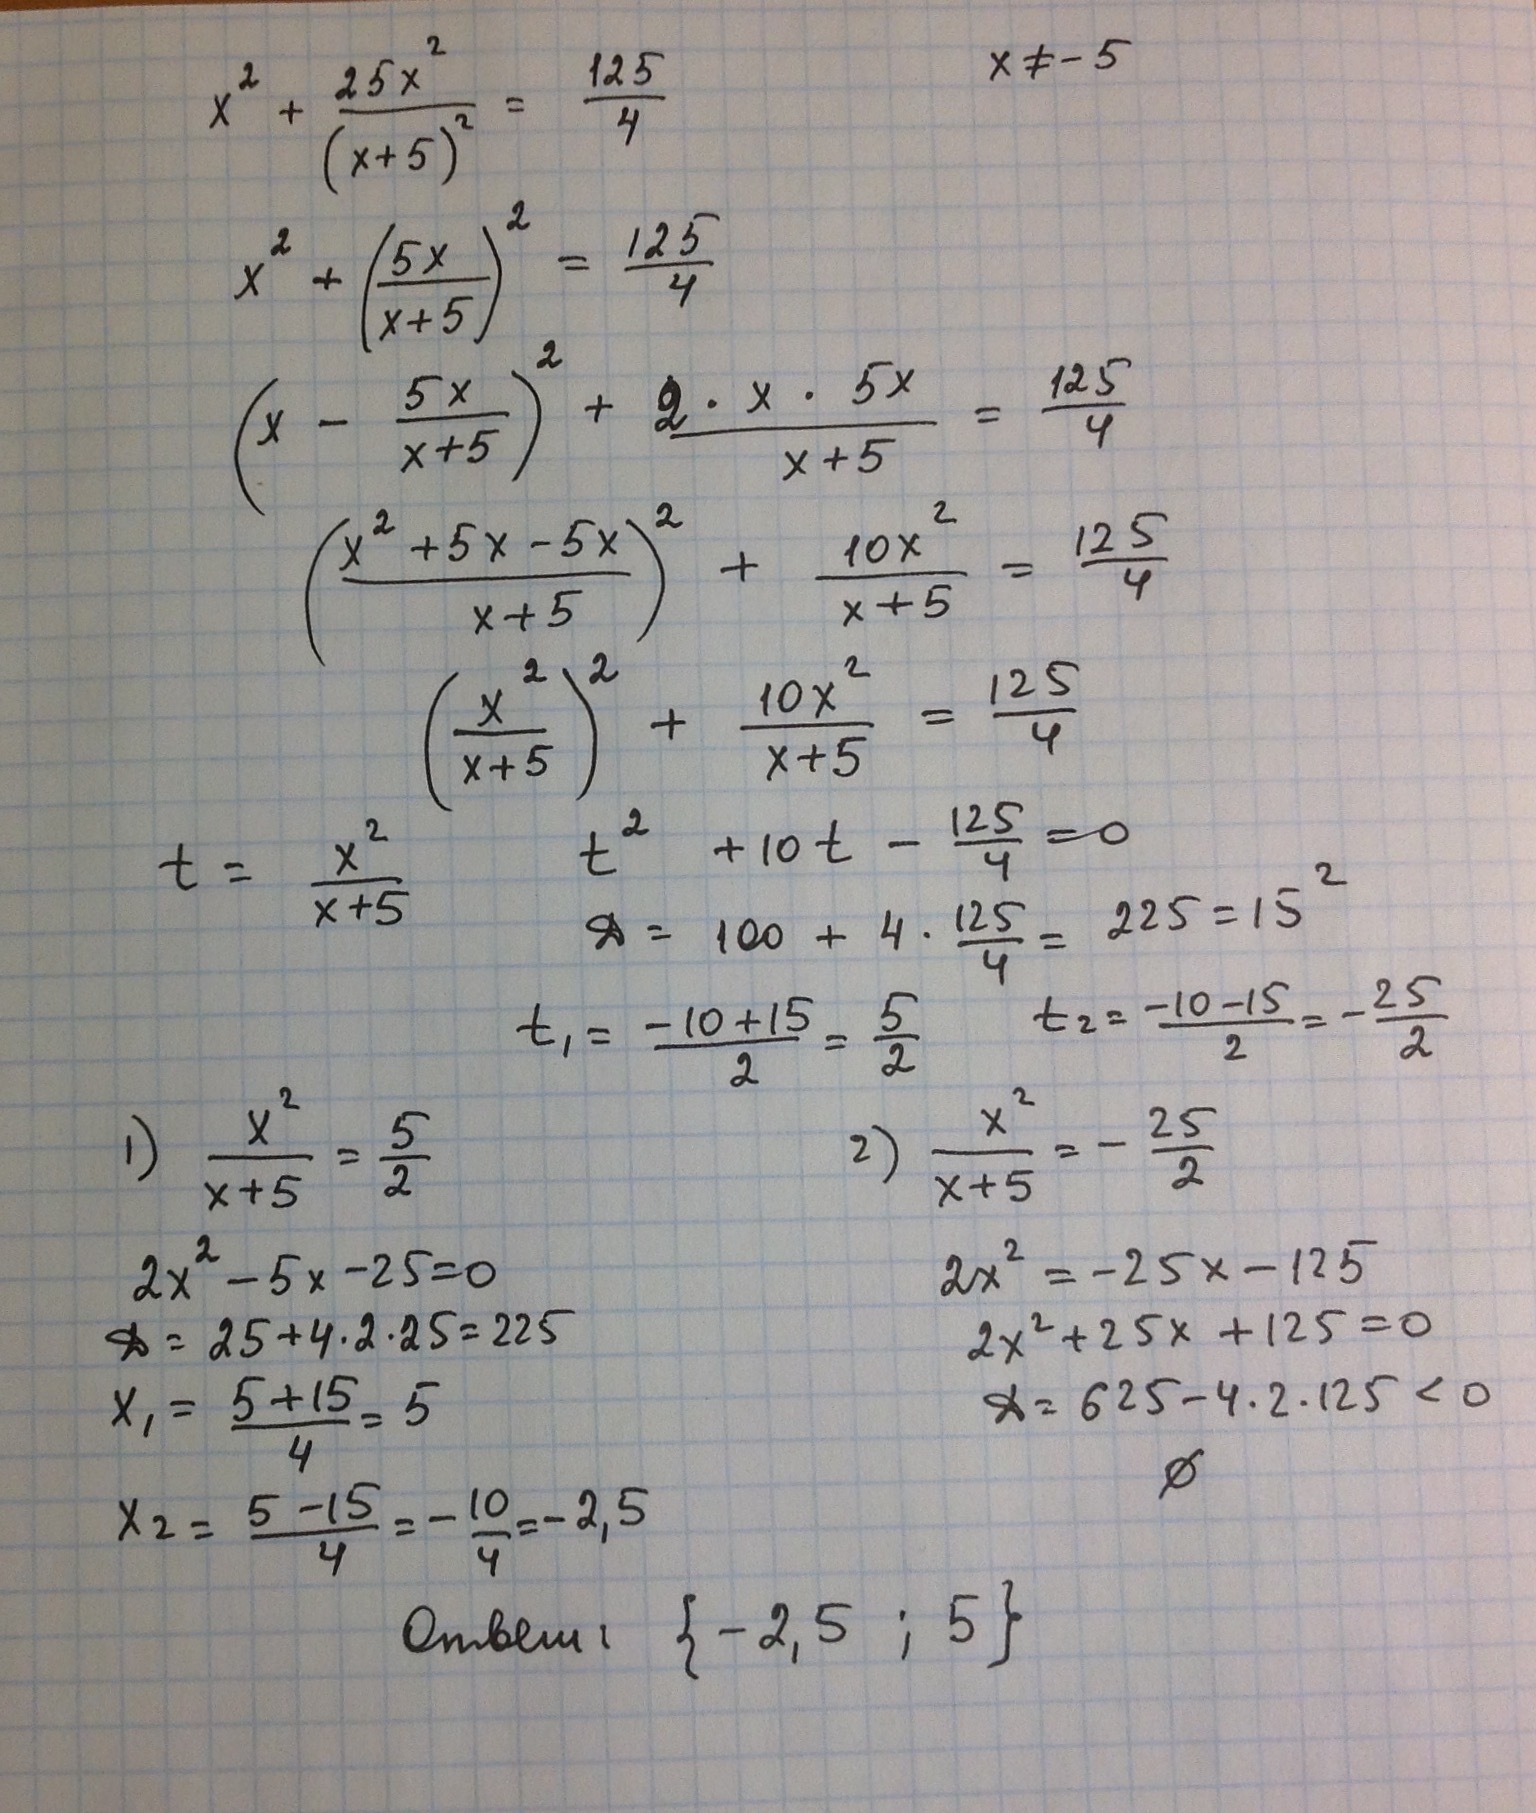 x² + 25x²/(x+5)² = 125/4 x ≠ -5
x² + (5x/(x+5))² = 125/4
(x - 5x/(x+5))² + 2·x·5x/(x+5) = 125/4
((x²+5x-5x)/(x+5))² + 10x²/(x+5) = 125/4
(x²/(x+5))² + 10x²/(x+5) = 125/4
t = x²/(x+5) t² + 10t - 125/4 = 0
D = 100 + 4·125/4 = 225 = 15²
t₁ = (-10+15)/2 = 5/2 t₂ = (-10-15)/2 = -25/2
1) x²/(x+5) = 5/2 2) x²/(x+5) = -25/2
2x² - 5x - 25 = 0 2x² = -25x - 125
D = 25+4·2·25 = 225 2x² + 25x + 125 = 0
x₁ = (5+15)/4 = 5 D = 625 - 4·2·125 < 0
∅
x₂ = (5-15)/4 = -10/4 = -2,5
Ответ: {-2,5 ; 5}